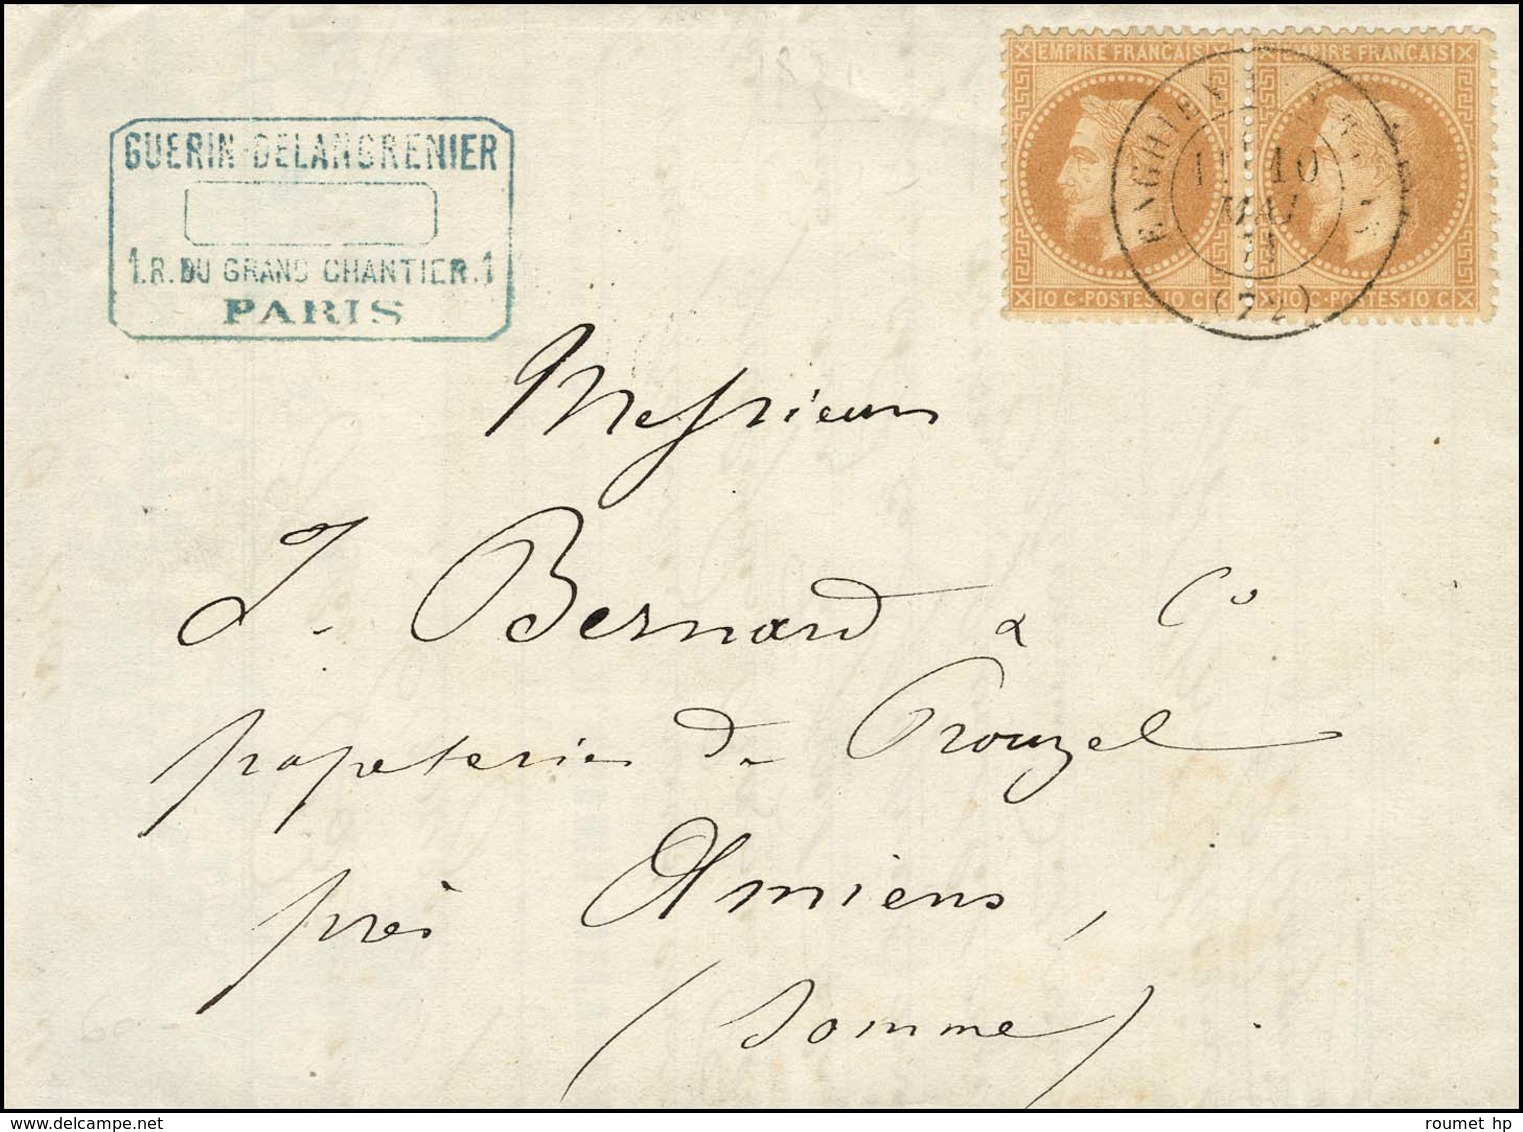 GUERIN-DELANGRENIER
1.R. DU GRAND CHANTIER.1
PARIS
EMPIRE FRANÇAIS
10 C · POSTES · 10 C
EMPIRE FRANÇAIS
10 C · POSTES · 10 C
ENGHIEN
10
MAI
71
(72)
Messieurs
J. Bernard & Co
papeteries de Prouzel
près Amiens,
(Somme)
60 -
roumet hp